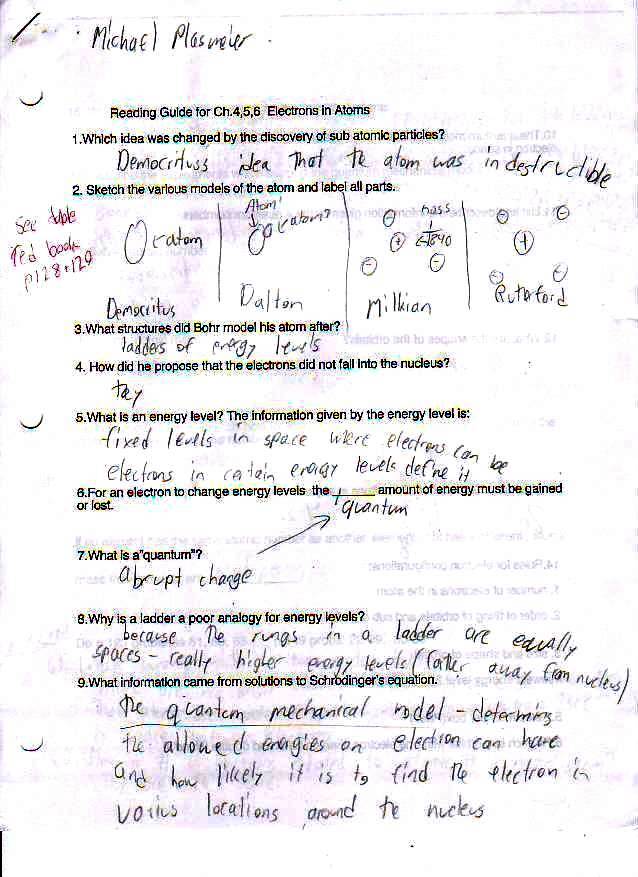 Michael Plasmeier
Reading Guide for Ch.4,5,6 Electrons in Atoms
1.Which idea was changed by the discovery of sub atomic particles?
Democrituss idea that the atom was indestructible
2. Sketch the various models of the atom and label all parts.
See table
red book
p128+129
atom
Atom
atom?
mass
1
1840
Democritus
Dalton
Milkian
Ruterford
3.What structures did Bohr model his atom after?
ladders of energy levels
4. How did he propose that the electrons did not fall into the nucleus?
they
5.What is an energy level? The information given by the energy level is:
fixed levels in space where electrons can be
electrons in certain energy levels define it
6.For an electron to change energy levels the _____ amount of energy must be gained
or lost.
quantum
7.What is a"quantum"?
abrupt change
8.Why is a ladder a poor analogy for energy levels?
because the rungs in a ladder are equally
spaces - really higher energy levels (farther away from nucleus)
9.What information came from solutions to Schrodinger's equation.
The quantum mechanical model - determins
the allowed energies an election can have
and how likely it is to find the electron in
varius locations around the nucleus